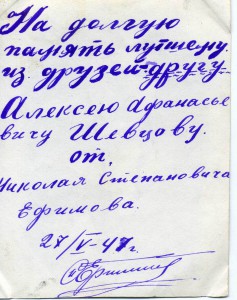 На долгую
память лутшему
из друзей-другу
Алексею Афанасье
вичу Шевцову.
от,
Николая Степановича
Ефимова.
27/V-47г.
Ефимов